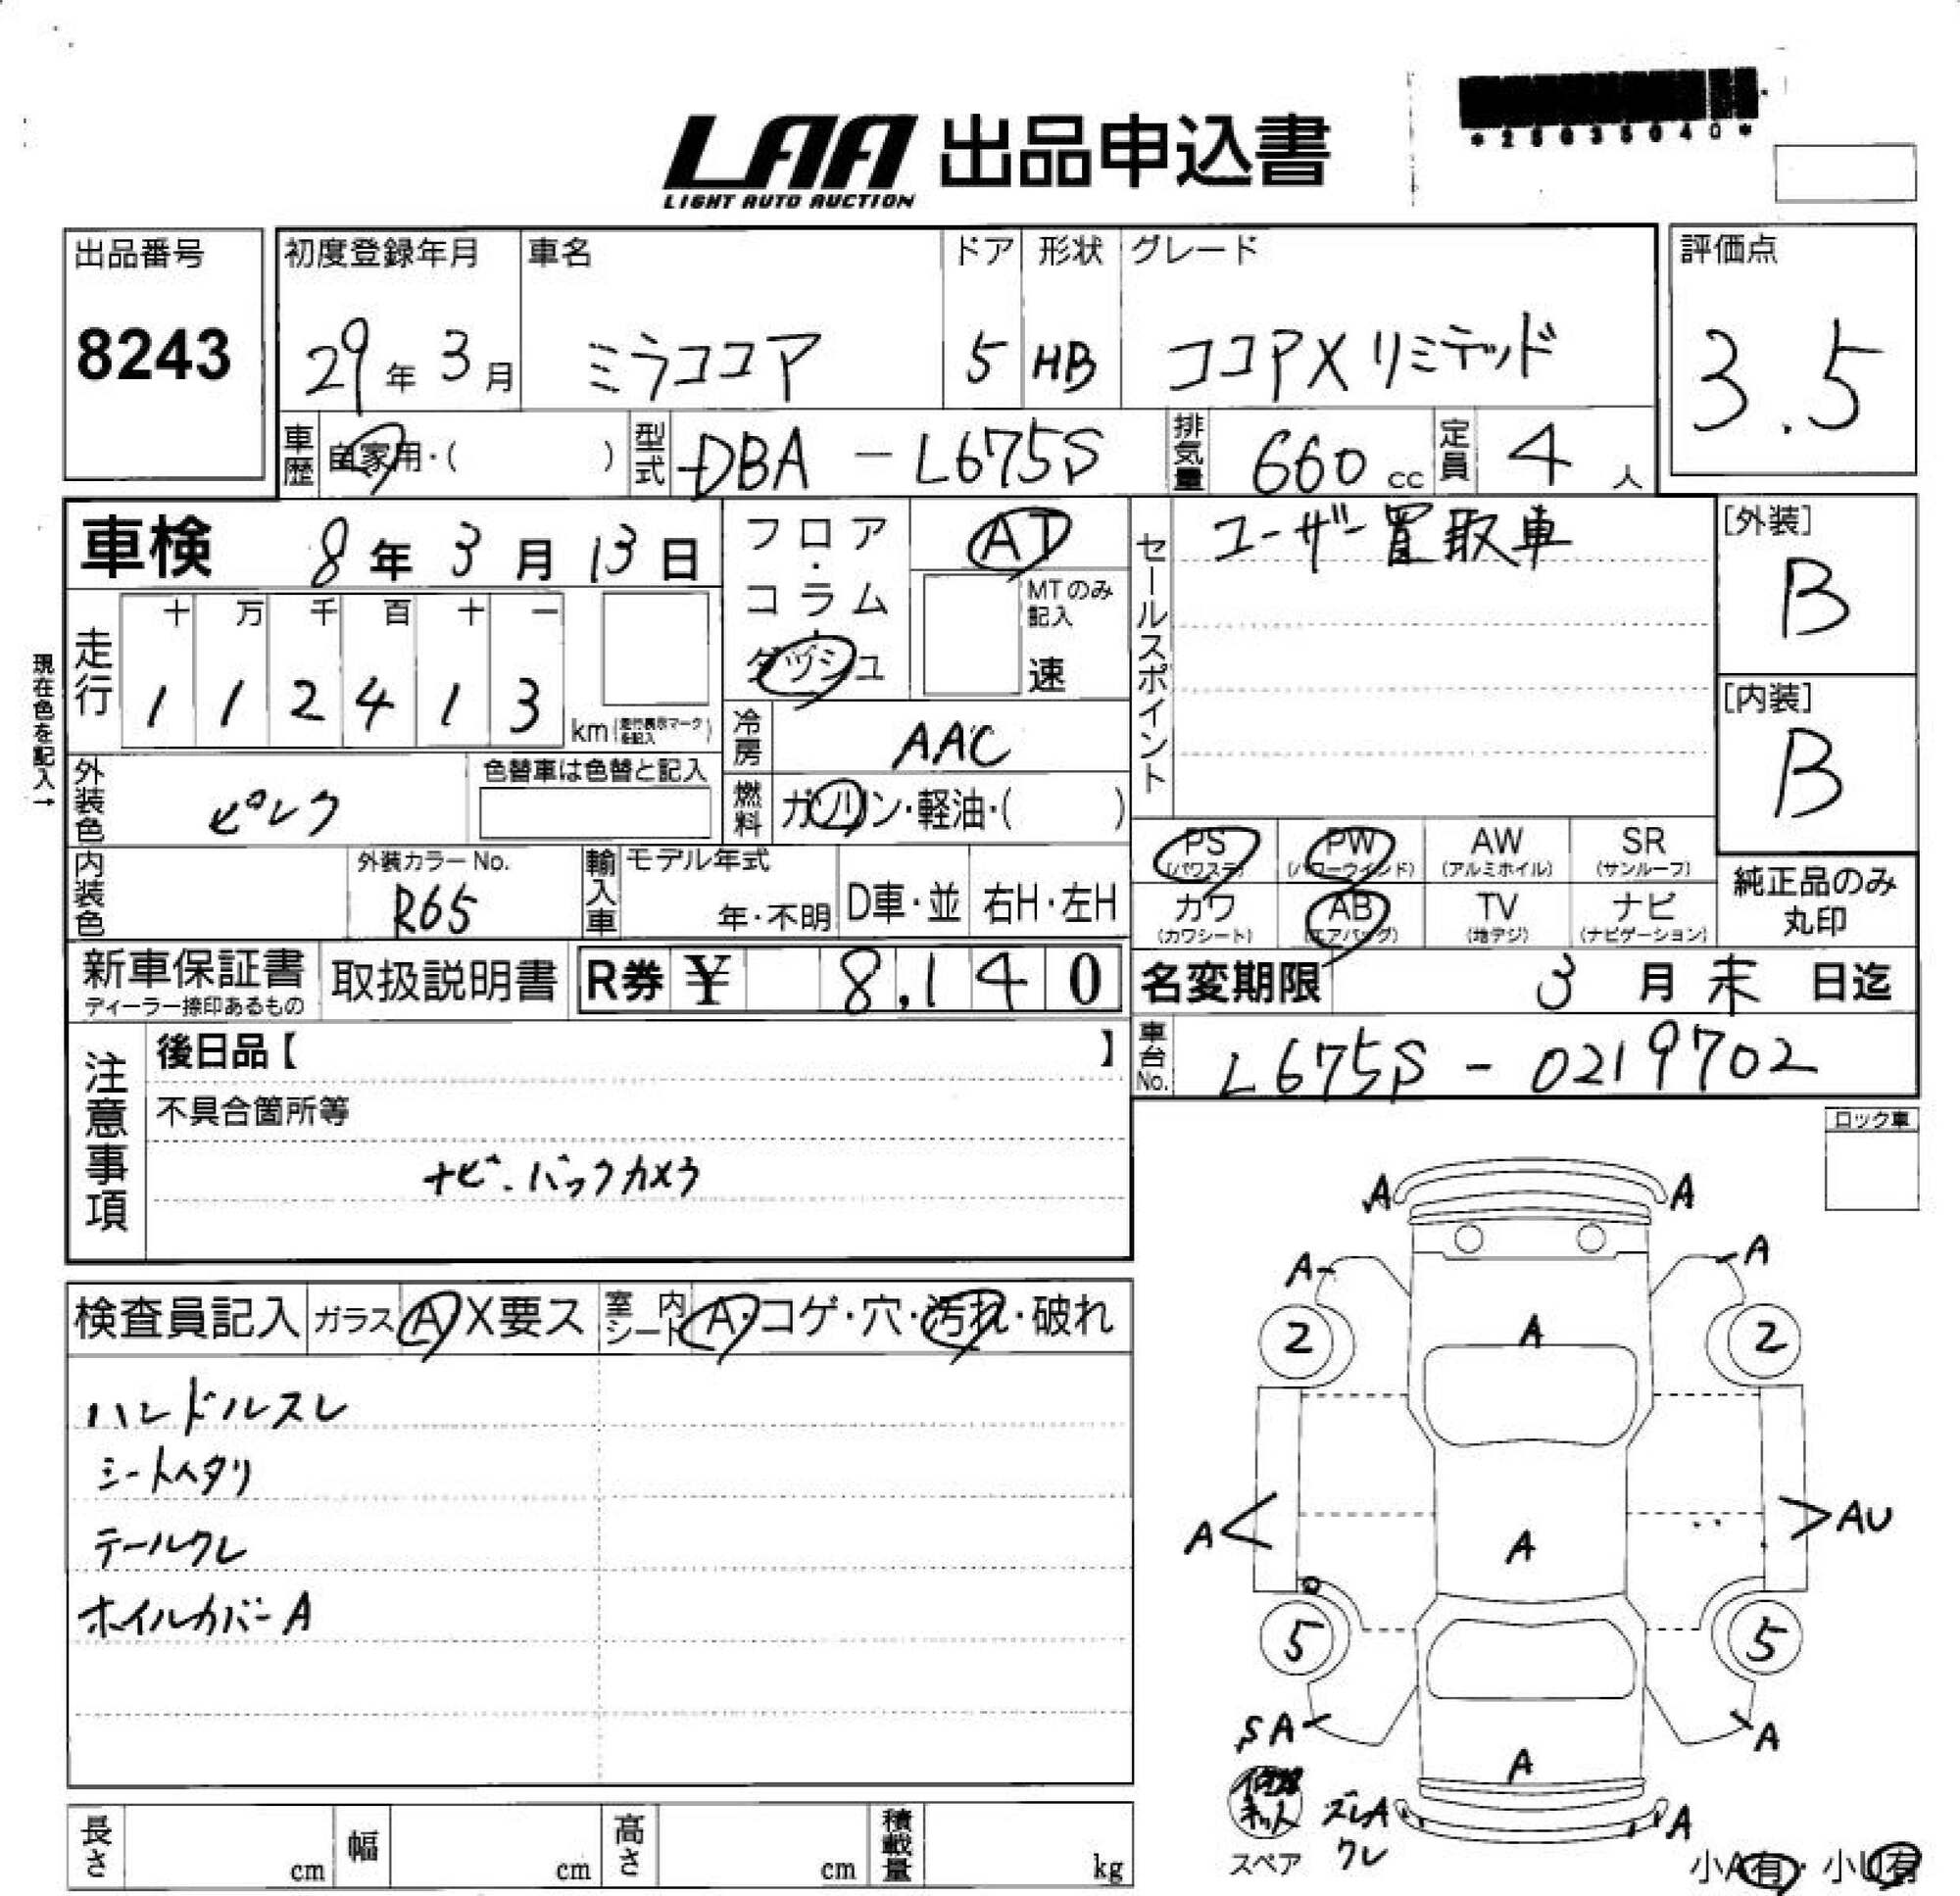 *25035040*
LAA 出品申込書
LIGHT AUTO AUCTION
出品番号
8243
初度登録年月
29年3月
車名
ミラココア
ドア
5
形状
HB
グレード
ココアXリミテッド
評価点
3.5
車歴
自家用・( )
型式
DBA - L675S
排気量
660 cc
定員
4 人
車検 8年3月13日
フロア・コラム・ダッシュ
AT
MTのみ記入
速
セールスポイント
ユーザー買取車
[外装]
B
[内装]
B
現在色を記入→
走行
十 万 千 百 十 一
1 1 2 4 1 3
km (走行表示マークを記入)
冷房
AAC
外装色
ピンク
色替車は色替と記入
燃料
ガソリン・軽油・( )
内装色
外装カラーNo.
R65
輸入車
モデル年式
年・不明
D車・並
右H・左H
PS
(パワステ)
PW
(パワーウインド)
AW
(アルミホイル)
SR
(サンルーフ)
カワ
(カワシート)
AB
(エアバッグ)
TV
(地デジ)
ナビ
(ナビゲーション)
純正品のみ
丸印
新車保証書
ディーラー捺印あるもの
取扱説明書
R券 ¥ 8,140
名変期限 3月末日迄
注意事項
後日品【 】
不具合箇所等
ナビ・バックカメラ
車台No.
L675S - 0219702
ロック車
検査員記入
ガラス A X要ス
室内シート A・コゲ・穴・汚れ・破れ
ハンドルスレ
シートヘタリ
テールクレ
ホイルカバーA
A A
A A
2 A 2
A A AU
5 5
SA A
A
ズレA A
クレ
スペア
小A有・小U有
長さ cm
幅 cm
高さ cm
積載量 kg